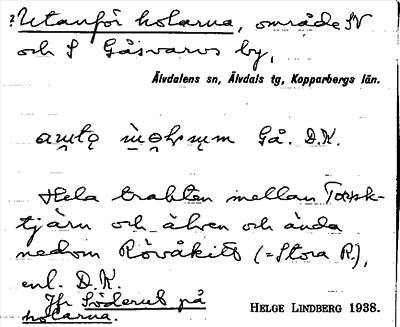 ?Utanför holarna, område N
och S Gåsvarvs by,
Älvdalens sn, Älvdals tg, Kopparbergs län.
Gå. D.K.
Hela trakten mellan Torsk-
tjärn och älven och ända
nedom Rövåkilt (= Stora R.),
enl. D.K.
Jfr Söderut på
holarna.
HELGE LINDBERG 1938.